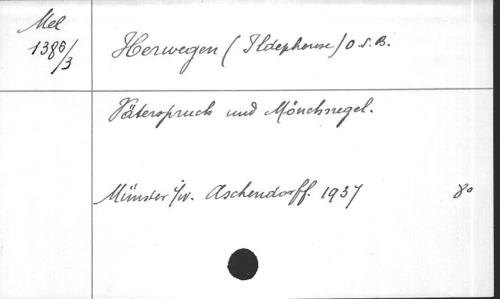 Mel
1386/3
Herwegen (Ildephonse) O.S.B.
Väterspruch und Mönchsregel.
Münster i/W. Aschendorff. 1937 8°